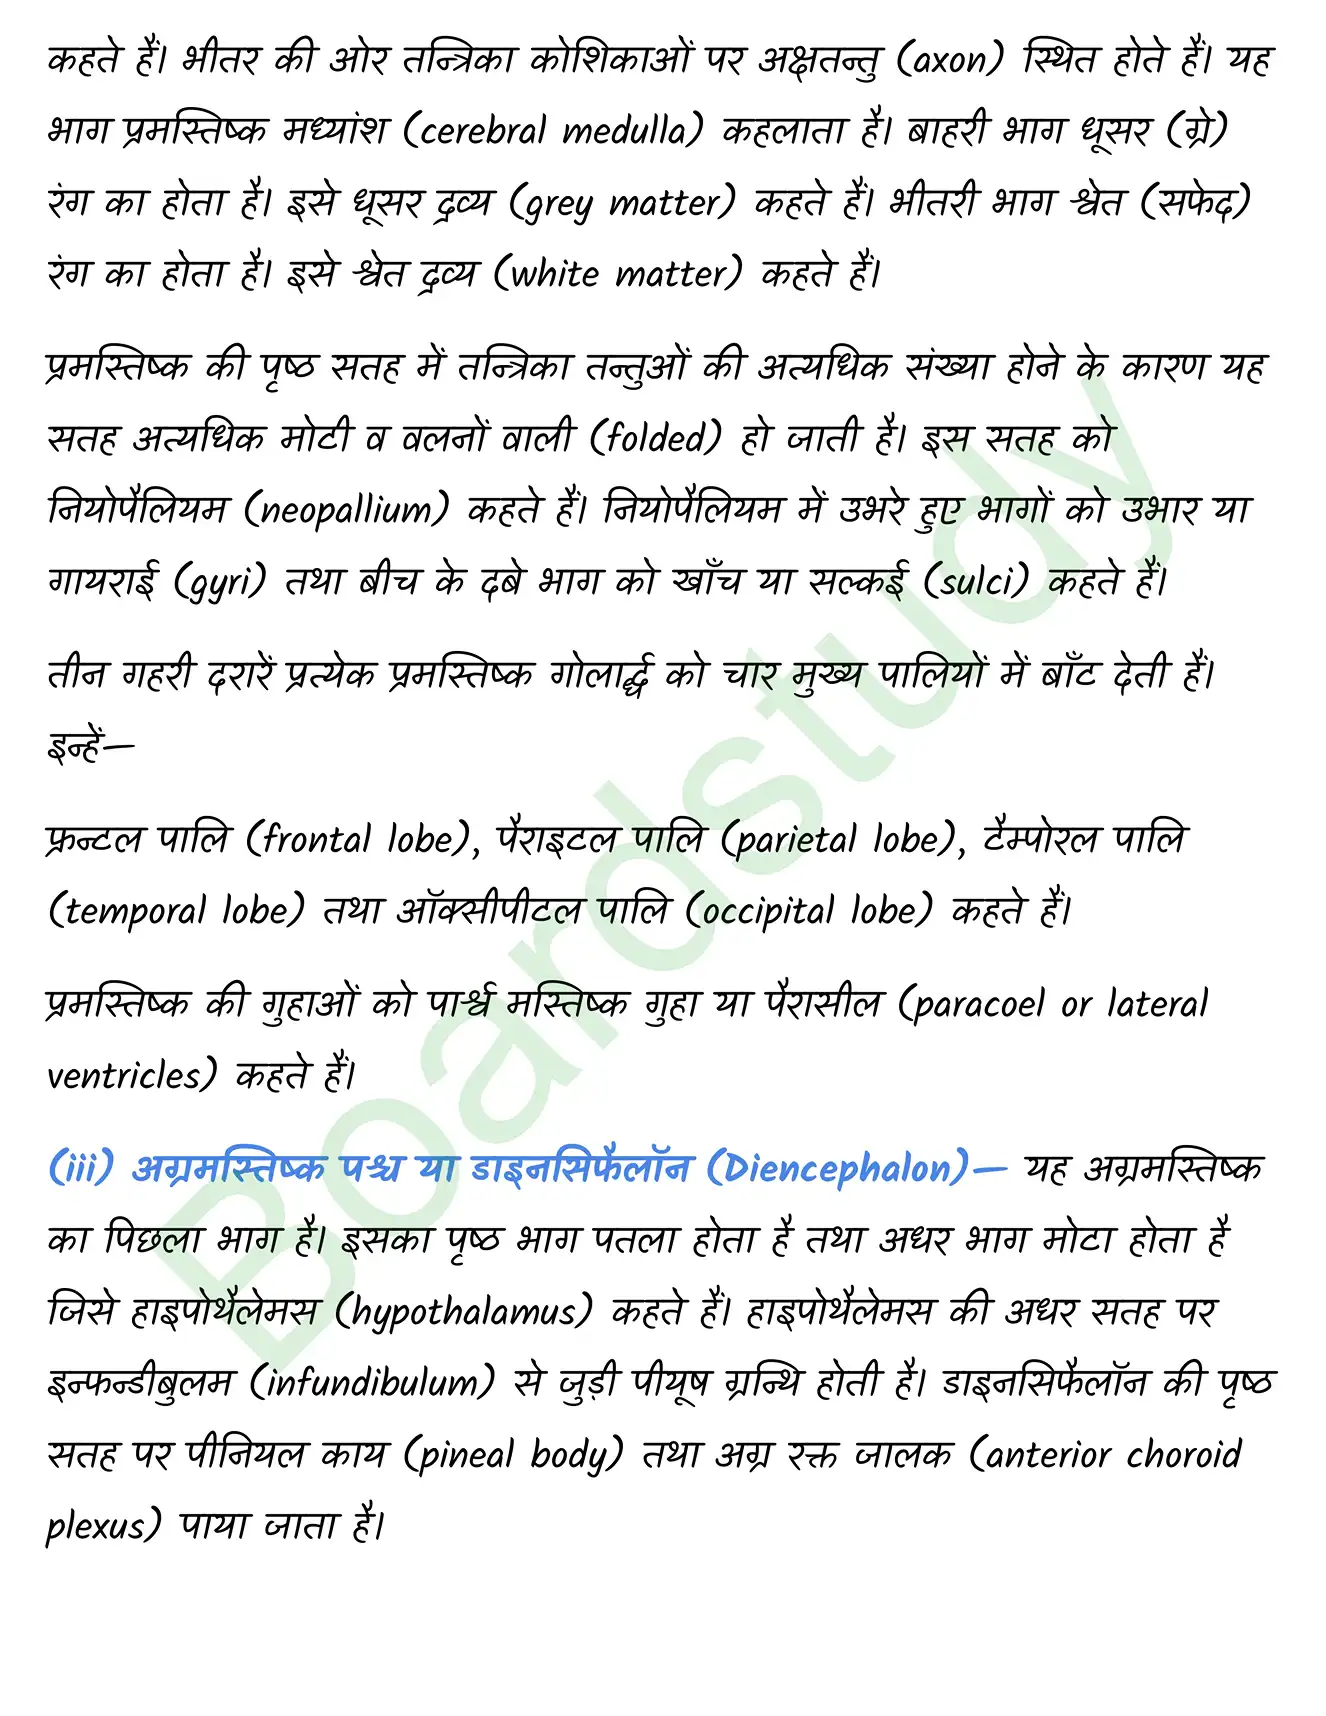 कहते हैं। भीतर की ओर तन्त्रिका कोशिकाओं पर अक्षतन्तु (axon) स्थित होते हैं। यह
भाग प्रमस्तिष्क मध्यांश (cerebral medulla) कहलाता है। बाहरी भाग धूसर (ग्रे)
रंग का होता है। इसे धूसर द्रव्य (grey matter) कहते हैं। भीतरी भाग श्वेत (सफेद)
रंग का होता है। इसे श्वेत द्रव्य (white matter) कहते हैं।
प्रमस्तिष्क की पृष्ठ सतह में तन्त्रिका तन्तुओं की अत्यधिक संख्या होने के कारण यह
सतह अत्यधिक मोटी व वलनों वाली (folded) हो जाती है। इस सतह को
नियोपैलियम (neopallium) कहते हैं। नियोपैलियम में उभरे हुए भागों को उभार या
गायराई (gyri) तथा बीच के दबे भाग को खाँच या सल्कई (sulci) कहते हैं।
तीन गहरी दरारें प्रत्येक प्रमस्तिष्क गोलार्द्ध को चार मुख्य पालियों में बाँट देती हैं।
इन्हें—
फ्रन्टल पालि (frontal lobe), पैराइटल पालि (parietal lobe), टैम्पोरल पालि
(temporal lobe) तथा ऑक्सीपीटल पालि (occipital lobe) कहते हैं।
प्रमस्तिष्क की गुहाओं को पार्श्व मस्तिष्क गुहा या पैरासील (paracoel or lateral
ventricles) कहते हैं।
(iii) अग्रमस्तिष्क पश्च या डाइनसिफैलॉन (Diencephalon)— यह अग्रमस्तिष्क
का पिछला भाग है। इसका पृष्ठ भाग पतला होता है तथा अधर भाग मोटा होता है
जिसे हाइपोथैलेमस (hypothalamus) कहते हैं। हाइपोथैलेमस की अधर सतह पर
इन्फन्डीबुलम (infundibulum) से जुड़ी पीयूष ग्रन्थि होती है। डाइनसिफैलॉन की पृष्ठ
सतह पर पीनियल काय (pineal body) तथा अग्र रक्त जालक (anterior choroid
plexus) पाया जाता है।
Boardstudy